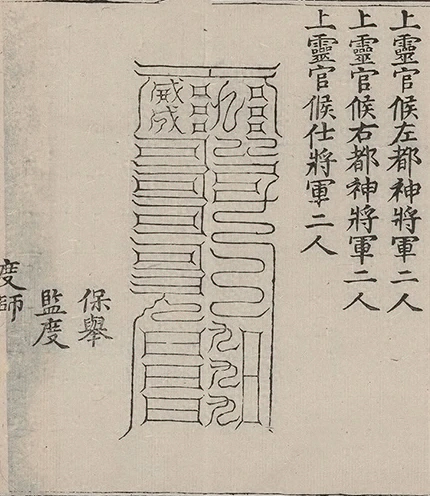 上靈官候左都神將軍二人
上靈官候右都神將軍二人
上靈官候仕將軍二人
保舉
監度
度師